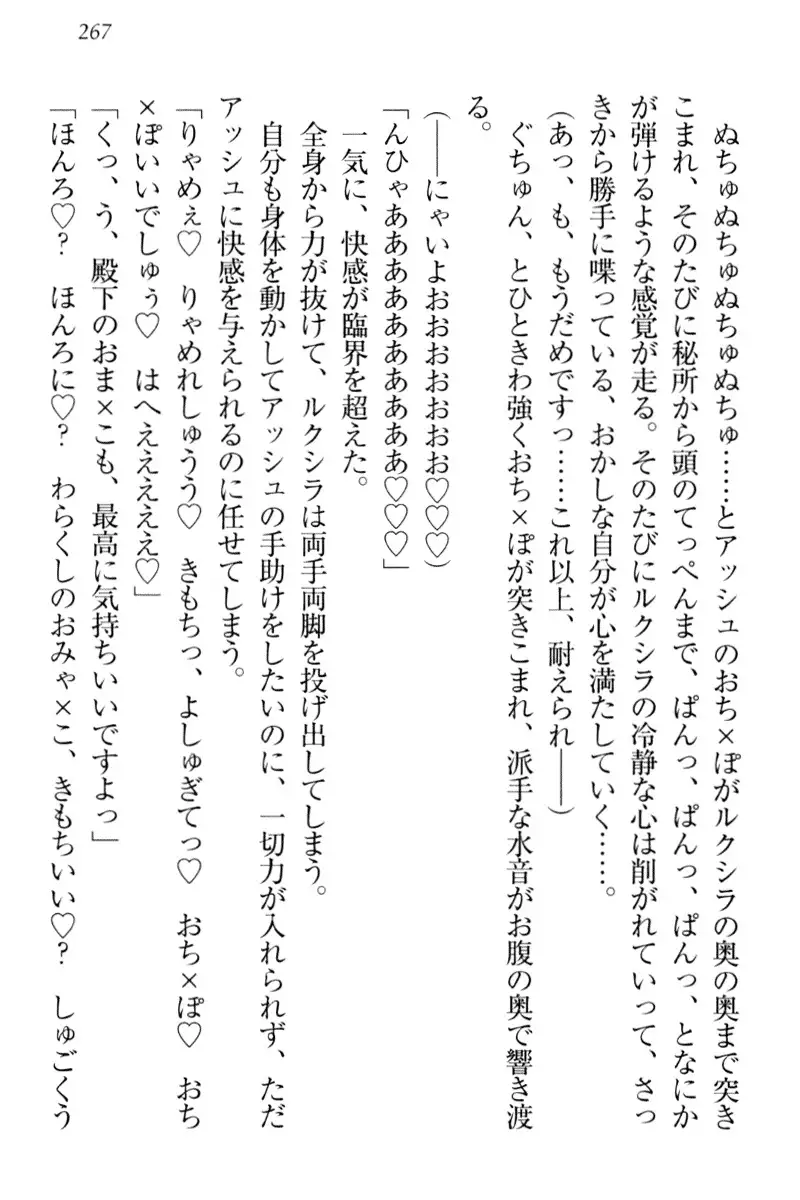 267
ぬちゅぬちゅぬちゅ……とアッシュのおち×ぽがルクシラの奥の奥まで突き
こまれ、そのたびに秘所から頭のてっぺんまで、ぱんっ、ぱんっ、となにか
が弾けるような感覚が走る。そのたびにルクシラの冷静な心は削がれていって、さっ
きから勝手に喋っている、おかしな自分が心を満たしていく……。
(あっ、も、もうだめですっ……これ以上、耐えられ――)
ぐちゅん、とひときわ強くおち×ぽが突きこまれ、派手な水音がお腹の奥で響き渡
る。
(――にゃいよおおおおおおお♡♡♡)
「んひゃああああああああああ♡♡♡」
一気に、快感が臨界を超えた。
全身から力が抜けて、ルクシラは両手両脚を投げ出してしまう。
自分も身体を動かしてアッシュの手助けをしたいのに、一切力が入れられず、ただ
アッシュに快感を与えられるのに任せてしまう。
「りゃめぇ♡　りゃめれしゅうう♡　きもちっ、よしゅぎてっ♡　おち×ぽ♡　おち
×ぽいいでしゅぅ♡　はへえええええ♡」
「くっ、う、殿下のおま×こも、最高に気持ちいいですよっ」
「ほんろ♡?　ほんろに♡?　わらくしのおみゃ×こ、きもちいい♡?　しゅごくう